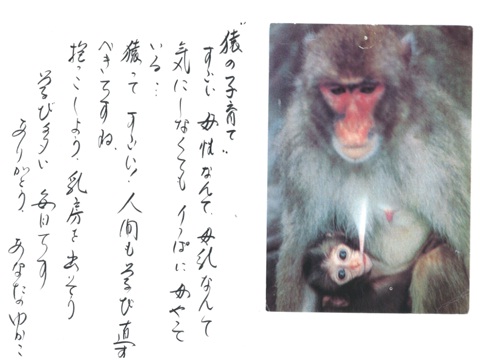 "猿の子育て"
すごい 母性なんて、母乳なんて
気にしなくても イッぱいに 母やって
いる…
猿って すごい！人間も 学び直す
べきですね。
抱っこしよう、乳房を出そう
学び多い 毎日です
ありがとう、 あなたのゆかこ